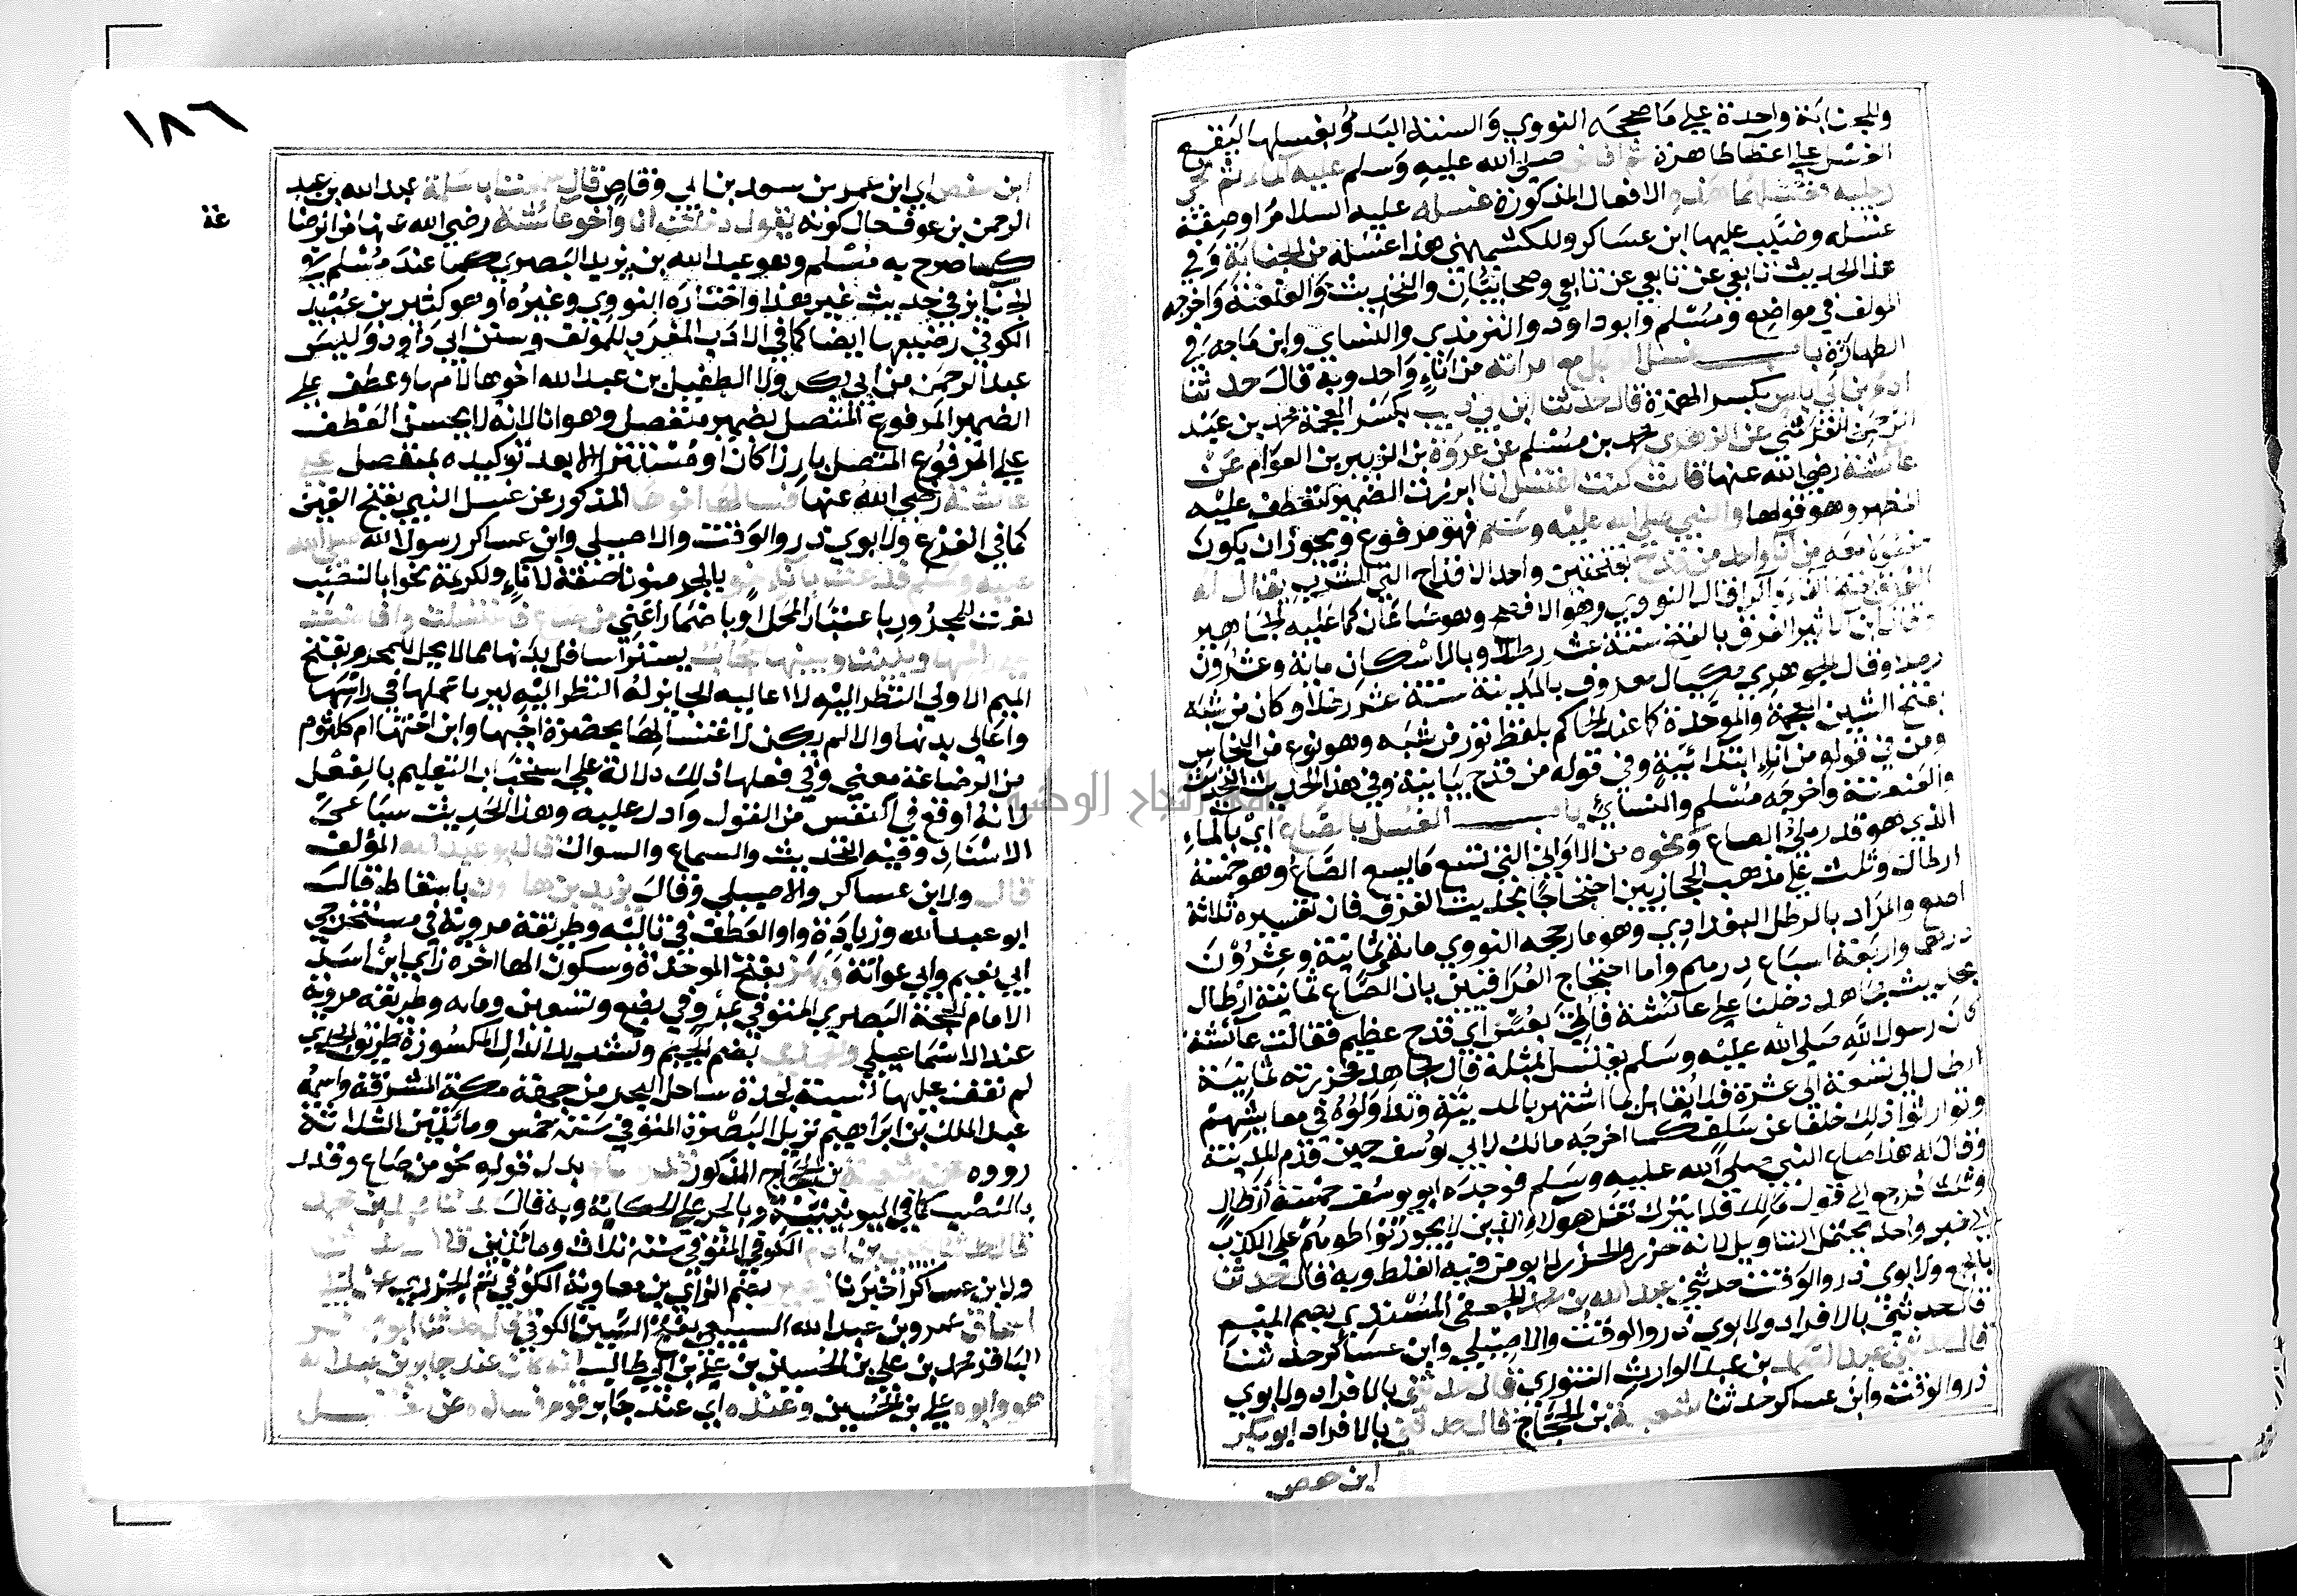 وللجنابة واحدة على ما صححه النووي والسنة البدء بغسلها ليقع
الغسل على اعضا طاهرة ثم افاض صلى الله عليه وسلم عليه الماء ثم نحى
رجليه فغسلهما هذه الافعال المذكورة غسله عليه السلام او صفة
غسله وضبب عليها ابن عساكر وللكشميهني هذا غسله من الجنابة وفي
هذا الحديث تابعي عن تابعي عن تابعي وصحابيان والتحديث والعنعنة واخرجه
المولف في مواضع ومسلم وابوداود والترمذي والنساي وابن ماجه في
الطهارة باب غسل الرجل مع امراته من اناء واحد وبه قال حدثنا
ادم بن ابي اياس بكسر الهمزة قال حدثنا ابن ابي ذيب بكسر المعجمة محمد بن عبد
الرحمن القرشي عن الزهري محمد بن مسلم عن عروة بن الزبير بن العوام عن
عائشة رضي الله عنها قالت كنت اغتسل انا ابرزت الضمير لتعطف عليه
المظهر وهو قولها والنبي صلى الله عليه وسلم فهو مرفوع ويجوز ان يكون
مفعولا معه من اناء واحد من قدح بفتحتين واحد الاقداح التي للشرب يقال له
الفرق بفتح الفاء والراء قال النووي وهو الافصح وهو صاعان كما عليه الجماهير
وقال ابن الاثير الفرق بالفتح ستة عشر رطلا وبالاسكان ماية وعشرون
رطلا وقال الجوهري مكيال معروف بالمدينة ستة عشر رطلا وكان من شبه
بفتح الشين المعجمة والموحدة كما عند الحاكم بلفظ تور من شبه وهو نوع من النحاس
ومن في قوله من اناء ابتدائية وفي قوله من قدح بيانية وفي هذا الحديث التحديث
والعنعنة واخرجه مسلم والنسائي باب الغسل بالصاع اي بالماء
الذي هو قدر ملئ الصاع ونحوه من الاواني التي تسع ما يسع الصاع وهو خمسة
ارطال وثلث على مذهب الحجازيين احتجاجا بحديث الفرق فان تفسيره ثلاثة
اصع والمراد بالرطل البغدادي وهو ما رجحه النووي ماية وثمانية وعشرون
درهما واربعة اسباع درهم واما احتجاج العراقيين بان الصاع ثمانية ارطال
بحديث مجاهد دخلنا على عائشة فاتي بعس اي قدح عظيم فقالت عائشة
كان رسول الله صلى الله عليه وسلم يغتسل بمثله قال مجاهد فحزرته ثمانية
ارطال الى تسعة الى عشرة فلا يقابل بما اشتهر بالمدينة وتداولوه في معايشهم
وتوارثوا ذلك خلفا عن سلف كما اخرجه مالك لابي يوسف حين قدم المدينة
وقال له هذا صاع النبي صلى الله عليه وسلم فوجده ابو يوسف خمسة ارطال
وثلثا فرجع الى قول مالك فلا يترك نقل هولاء الذين لا يجوز تواطوهم على الكذب
الى خبر واحد يحتمل التاويل لانه حزر والحزر لا يومن فيه الغلط وبه قال حدثنا
بالجمع ولابوي ذر والوقت حدثني عبد الله بن محمد الجعفي المسندي بضم الميم
قال حدثني بالافراد ولابوي ذر والوقت والاصيلي وابن عساكر حدثنا
قال حدثني عبد الصمد بن عبد الوارث التنوري قال حدثني بالافراد ولابوي
ذر والوقت وابن عساكر حدثنا شعبة بن الحجاج قال حدثني بالافراد ابو بكر
ابن حفص
١٨٦
ابن حفص اي ابن عمر بن سعد بن ابي وقاص قال سمعت ابا سلمة عبد الله بن عبد
الرحمن بن عوف حال كونه يقول دخلت انا واخو عائشة رضي الله عنها من الرضا
عة
كما صرح به مسلم وهو عبد الله بن يزيد البصري كما عند مسلم في
الجنايز في حديث غير هذا واختاره النووي وغيره او هو كثير بن عبيد
الكوفي رضيعها ايضا كما في الادب المفرد للمولف وسنن ابي داود وليس
عبد الرحمن بن ابي بكر ولا الطفيل بن عبد الله اخوها لامها وعطف على
الضمير المرفوع المتصل بضمير منفصل وهو انا لانه لا يحسن العطف
على المرفوع المتصل بارزا كان او مستترا الا بعد توكيده بمنفصل على
عائشة رضي الله عنها فسالها اخوها المذكور عن غسل النبي بفتح الغين
كما في الفرع ولابوي ذر والوقت والاصيلي وابن عساكر رسول الله صلى الله
عليه وسلم فدعت باناء نحو بالجر منونا صفة لاناء ولكريمة نحوا بالنصب
نعت للمجرور باعتبار المحل او باضمار اعني من صاع فاغتسلت وافاضت
على راسها وبيننا وبينها حجاب يستر اسافل بدنها مما لا يحل للمحرم بفتح
الميم الاولى النظر اليه لا اعاليه الجايز له النظر اليه ليريا عملها في راسها
واعالي بدنها والا لم يكن لاغتسالها بحضرة اخيها وابن اختها ام كلثوم
من الرضاعة معنى وفي فعلها ذلك دلالة على استحباب التعليم بالفعل
لانه اوقع في النفس من القول وادل عليه وهذا الحديث سباعي
الاسناد وفيه التحديث والسماع والسوال قال ابو عبد الله المؤلف
قال ولابن عساكر والاصيلي وقال يزيد بن هارون باسقاط قال
ابو عبد الله وزيادة واو العطف في تاليه وطريقه مروية في مستخرجي
ابي نعيم وابي عوانة وبهز بفتح الموحدة وسكون الها اخره زاي ابن اسد
الامام الحجة البصري المتوفي بمرو في بضع وتسعين وماية وطريقه مروية
عند الاسماعيلي والجدي بضم الجيم وتشديد الدال المكسورة طريق الجدي
لم نقف عليها نسبة لجدة ساحل البحر من جهة مكة المشرفة واسمه
عبد الملك بن ابراهيم نزيل البصرة المتوفي سنة خمس ومائتين الثلاثة
رووه عن شعبة بن الحجاج المذكور قدر صاع بدل قوله نحو من صاع وقدر
بالنصب كما في اليونينية وبالجر على الحكاية وبه قال حدثنا عبد الله بن محمد
قال حدثنا يحيى بن ادم الكوفي المتوفي سنة ثلاث ومائتين قال حدثنا
ولابن عساكر اخبرنا زهير بضم الزاي بن معاوية الكوفي ثم الجزري عن ابي
اسحاق عمرو بن عبد الله السبيعي بفتح السين الكوفي قال حدثنا ابو جعفر
الباقر محمد بن علي بن الحسين بن علي بن ابي طالب انه كان عند جابر بن عبد الله
هو وابوه علي بن الحسين وعنده اي عند جابر قوم فسالوه عن الغسل